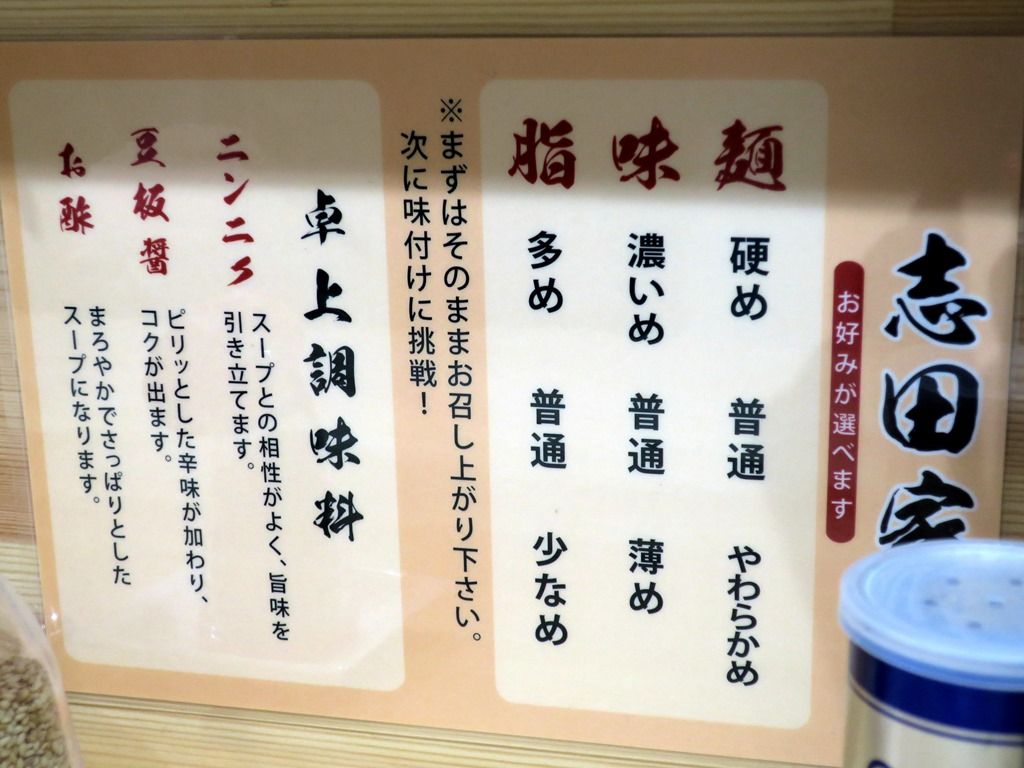 志田家
お好みが選べます
麺 硬め 普通 やわらかめ
味 濃いめ 普通 薄め
脂 多め 普通 少なめ
※まずはそのままお召し上がり下さい。
次に味付けに挑戦！
卓上調味料
ニンニク
スープとの相性がよく、旨味を
引き立てます。
豆板醤
ピリッとした辛味が加わり、
コクが出ます。
お酢
まろやかでさっぱりとした
スープになります。